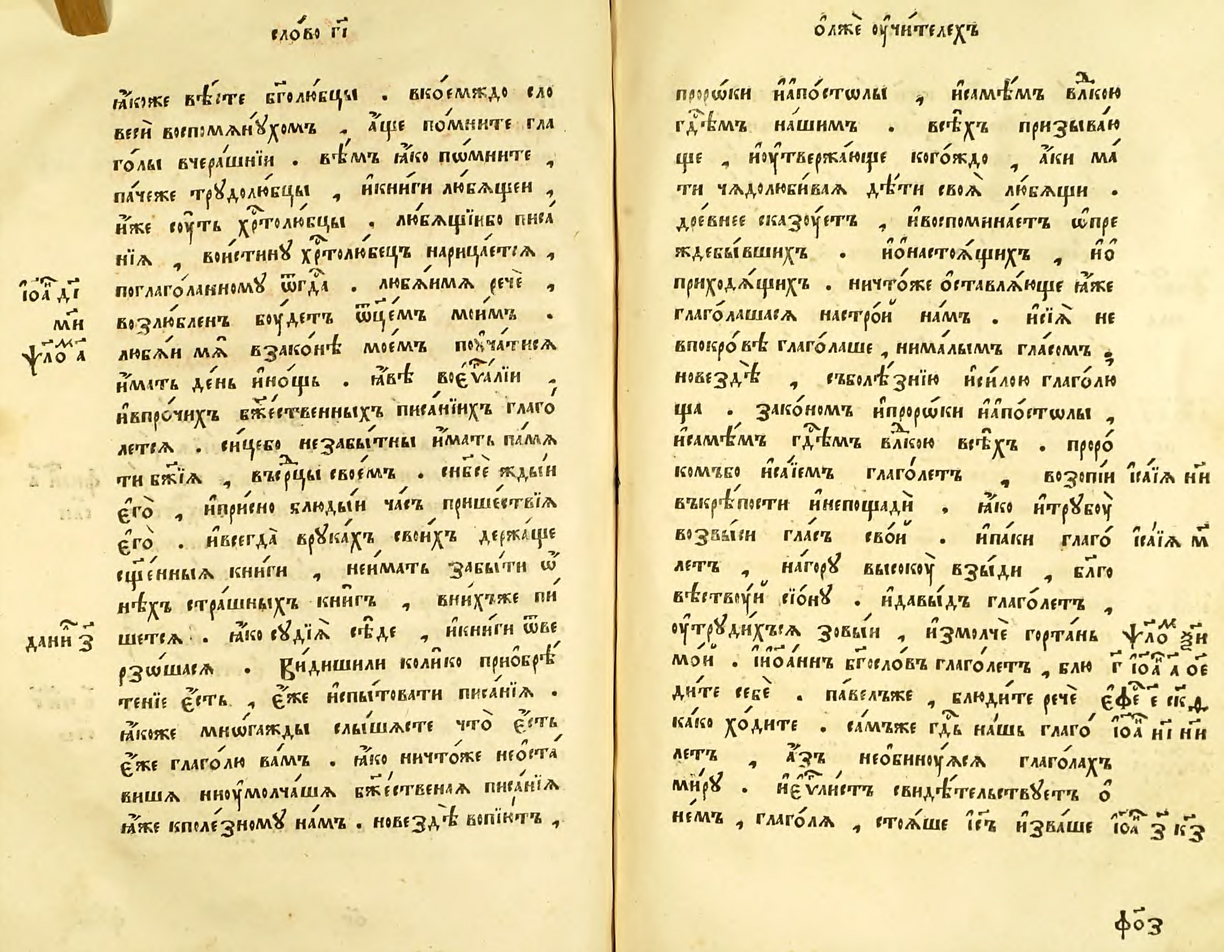 сло́во г҃і
ꙗ҆́коже вѣ́сте бг҃олю́бцы . вкоє́мждо сло
весѝ воспомѧнꙋ́хомъ , а҆́ще по́мните гла
го́лы вчера́шнїи . вѣ́мъ ꙗ҆́ко пѡ́мните ,
па́чеже трꙋдолю́бцы , и҆кни́ги лю́бѧщеи ,
и҆́же сꙋ́ть хрⷭ҇толю́бцы . лю́бѧщїибо писа́
нїѧ , вои́стинꙋ хрⷭ҇толю́бецъ нарица́етсѧ ,
поглаго́ланномꙋ ѿгдⷭ҇а . любѧ́имѧ речѐ ,
возлю́бленъ бꙋ́детъ ѻ҆ц҃е́мъ мои́мъ .
любѧ́и мѧ̀ взако́нѣ мое́мъ поꙋча́тисѧ
и҆́мать де́нь и҆но́щь . ꙗ҆́вѣ воєѵⷢ҇а́лїи ,
и҆впро́чихъ бж҃е́ственныхъ писа́нїихъ глаго́
летсѧ . си́цебо незабы́тны и҆́мать па́мѧ
ти бж҃їѧ , въсрⷣцы свое́мъ .
є҆гѡ̀ , и҆при́сно блюды́и ча́съ прише́ствїѧ
є҆гѡ̀ . и҆всегда̀ врꙋка́хъ свои́хъ держа́ще
сщ҃е́нныѧ кни́ги , неи́мать забы́ти ѡ҆
нѣ́хъ стра́шныхъ кни́гъ , вни́хъже пи́
шетсѧ . ꙗ҆́ко сꙋдїѧ̀ сѣ́де , и҆кни́ги ѿве
рзѡ́шасѧ . Ви́дишили коли́ко прїѡбрѣ́
тенїе є҆́сть , є҆́же и҆спы́товати писа́нїѧ .
ꙗ҆́коже мно́гажды слы́шѧсте что̀ є҆́сть
є҆́же глаго́лю ва́мъ . ꙗ҆́ко ничто́же неѡ҆ста́
вишѧ ниꙋ҆молча́шѧ бж҃е́ственаѧ писа́нїѧ
ꙗ҆́же кполе́зномꙋ на́мъ . но вездѣ̀ вопїю́тъ ,
і҆ѡⷩ҇а ді҃
мн҃
ѱло́ⷨ а
дани҃ и҃ з҃
ѡ҆лже́ ꙋ҆чи́телехъ
проро́ки и҆а҆по́столы , и҆самѣ́мъ влⷣкою
гдⷭ҇емъ на́шимъ . всѣ́хъ призыва́ю
ще , и҆ꙋ҆твержа́юще кого́ждо , а҆́ки ма́
ти чѧдолюби́ваѧ дѣ́ти своѧ̀ лю́бѧщи .
дре́внее сказꙋ́етъ , и҆воспомина́етъ ѡ҆пре
ждебы́вшихъ . и҆ѻ҆настоѧ́щихъ , и҆ѻ҆
приходѧ́щихъ . ничто́же ѻ҆ставлѧ́юще ꙗ҆́же
глаго́лашасѧ настро́й на́мъ . и҆сїѧ̀ не
впокро́вѣ глаго́лаше , нима́лымъ гла́сомъ ,
новездѣ̀ , съболѣ́знїю и҆си́лою глаго́лю
ща . зако́номъ и҆проро́ки и҆а҆по́столы ,
и҆самѣ́мъ гдⷭ҇емъ влⷣкою всѣ́хъ . проро́
комъбо и҆са́їемъ глаго́летъ , возопі́и
въкрѣ́пости и҆непощадѝ . ꙗ҆́ко и҆трꙋбꙋ̀
возвы́си гла́съ сво́й . и҆па́ки глаго́
летъ , на́горꙋ высокꙋ̀ взы́ди , бл҃го
вѣствꙋ́й сїѡ́нꙋ . и҆давы́дъ глаго́летъ ,
ꙋ҆трꙋди́хъсѧ зовы́и , и҆змолчѐ горта́нь
мо́й . і҆ѡа́ннъ бг҃осло́въ глаго́летъ , блю
ди́те себѐ . па́велъже , блюди́те речѐ
ка́ко хо́дите . са́мъже гдⷭ҇ь на́шь глаго́
летъ , а҆́зъ необинꙋ́ѧсѧ глаго́лахъ
ми́рꙋ . и҆єѵⷢ҇ли́стъ свидѣ́тельствꙋетъ ѻ҆
не́мъ , глаго́лѧ , стоѧ́ше і҆с҃ъ и҆зва́ше
і҆са́їѧ нн҃
і҆са́їѧ м҃
ѱло́ⷨ
г҃ і҆ѡⷩ҇а а ое
є҆фе҃ е҃
і҆ѡⷩ҇а ні҃ нн҃
і҆ѡⷩ҇а з҃ кз҃
фо҃з